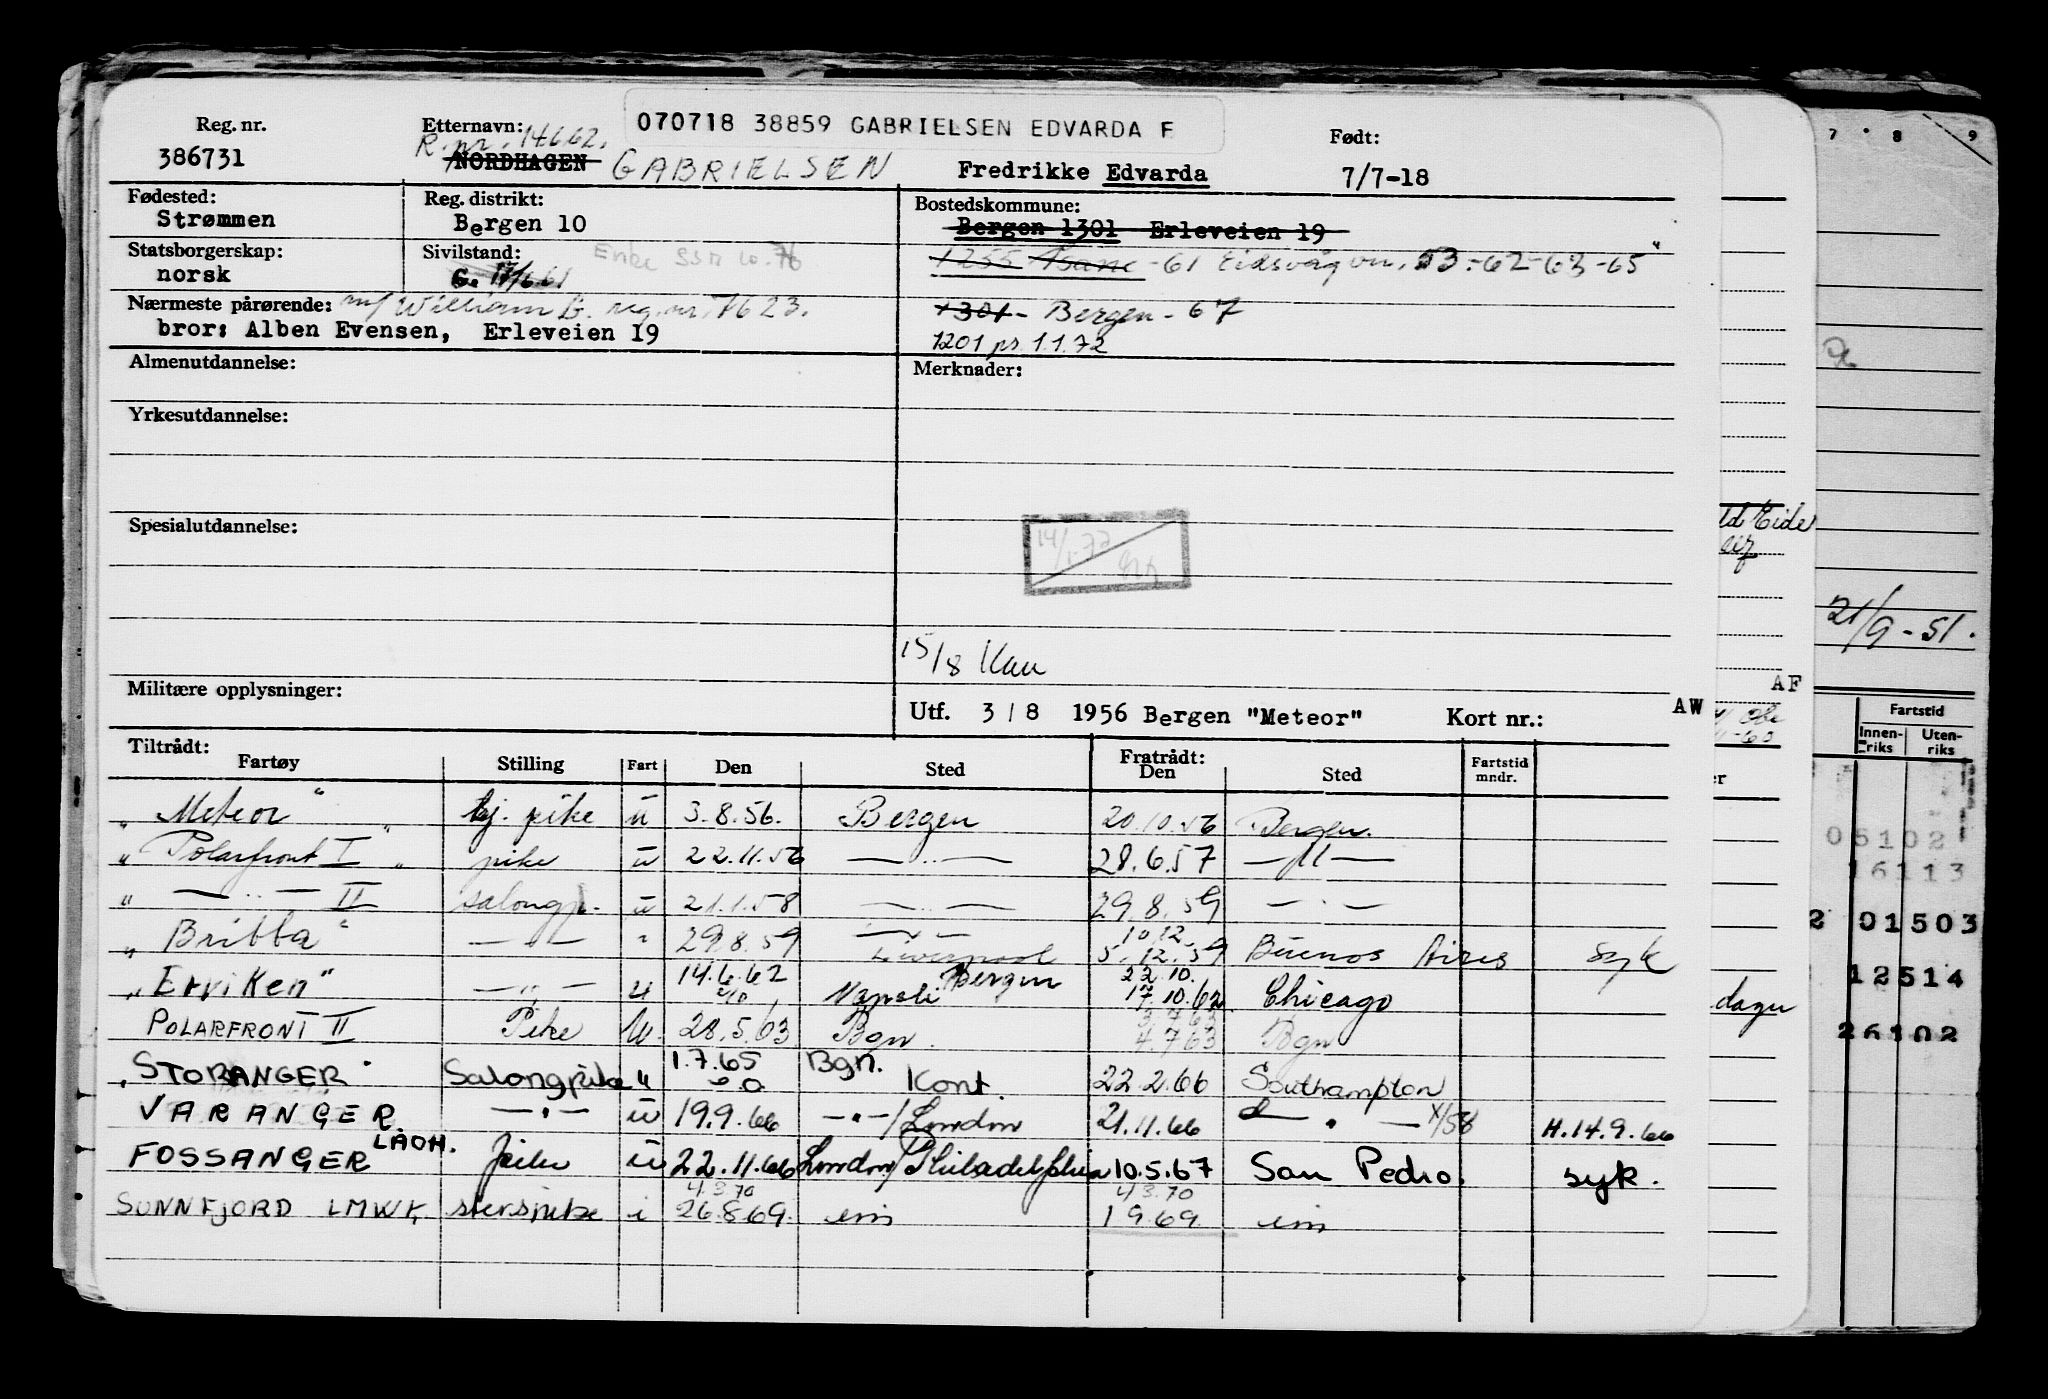 070718 38859 GABRIELSEN EDVARDA F
Reg. nr. Etternavn: Født:
R. nr. 14662.
386731 NORDHAGEN GABRIELSEN Fredrikke Edvarda 7/7-18
Fødested: Reg. distrikt: Bostedskommune:
Strømmen Bergen 10 Bergen 1301 Erleveien 19
Statsborgerskap: Sivilstand: Enke SSB 10.76
norsk G. 17/6.61 1255 Åsane -61 Eidsvågvn. 53.-62-63-65
Nærmeste pårørende: m/ William G. reg.nr. 7623. 1301 - Bergen - 67
bror: Alben Evensen, Erleveien 19
1201 pr. 1.1.72
Almenutdannelse: Merknader:
Yrkesutdannelse:
Spesialutdannelse:
14/1-77
15/8 Kau
Militære opplysninger:
Utf. 3/8 1956 Bergen "Meteor" Kort nr.: AW
Tiltrådt: Fratrådt:
Fartøy Stilling Fart Den Sted Den Sted Fartstid mndr.
"Meteor" bj. pike u 3.8.56. Bergen 20.10.56 Bergen.
"Polarfront I" pike u 22.11.56 — " — 28.6.57 — " —
" — " — II salongp. u 21.1.58 — " — 29.8.59 — " —
10.12.
"Britta" — " — " 29.8.59 — " — Liverpool 5.12.59 Buenos Aires syk
14.6.62 Bergen 22.10.
"Erviken" — " — u 2/10 Napoli 17.10.62 Chicago
3.7.63
POLARFRONT II Pike u. 28.5.63 Bgn. 4.7.63 Bgn
1.7.65 Bgn.
"STORANGER" Salongpike " Kont. 22.2.66 Southampton
VARANGER — " — u 19.9.66 — " — / London 21.11.66 — " — X/58 H.14.9.66
FOSSANGER LAOH. pike u 22.11.66 London/Philadelphia 10.5.67 San Pedro. syk.
4.3.70 4.3.70
SUNNFJORD LMWK i 26.8.69. 1 9.69
AF
ld Eide
dager
7 8 9
21/9-51.
Fartstid
Innenriks Utenriks
05102
16113
2 01503
12514
26102